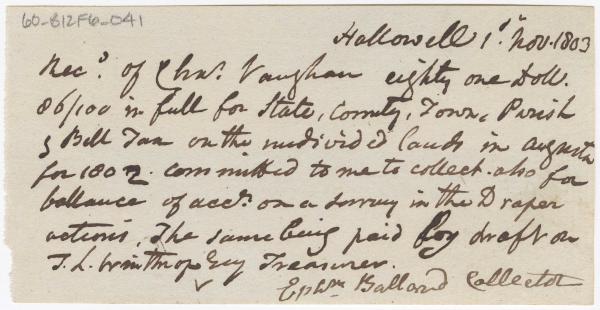 60-B12F6-041
Hallowell 1st Nov. 1803
Recd. of Chas. Vaughan eighty one Doll.
86/100 in full for State, County, Town, Parish
& Bell Tax on the undivided lands in Augusta
for 1802. committed to me to collect. also for
ballance of acct. on a survey in the Draper
actions, The same being paid by draft on
T. L. Winthrop Esq Treasurer.
Ephm Ballard Collector